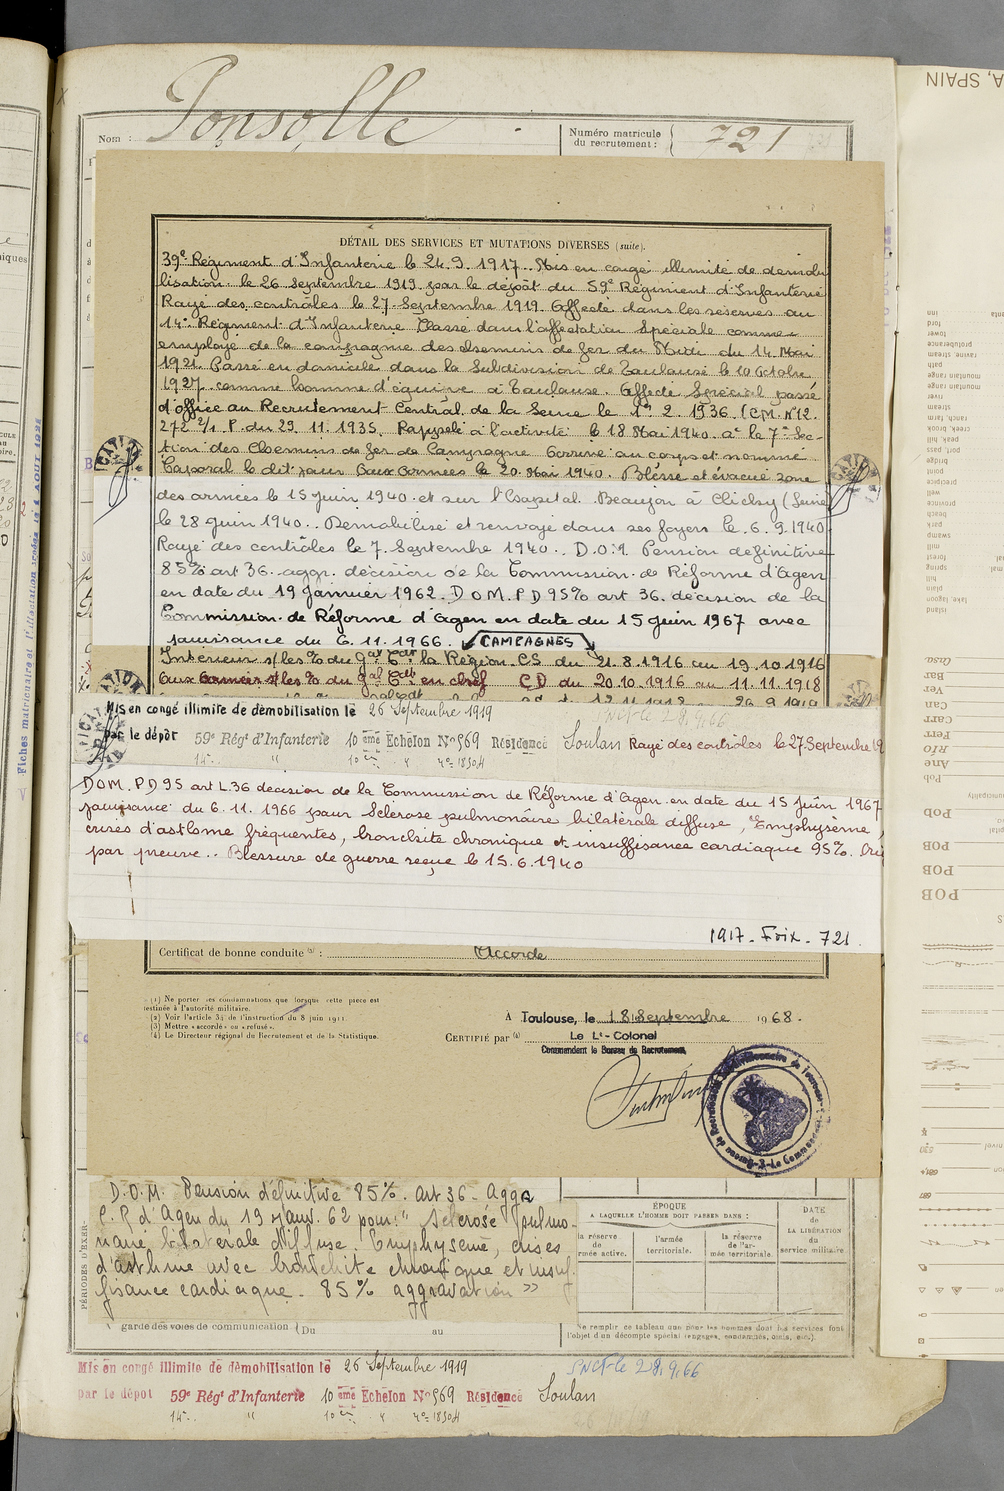 Nom : Ponsolle
Numéro matricule du recrutement : 721
DÉTAIL DES SERVICES ET MUTATIONS DIVERSES (suite).
39e Régiment d'Infanterie le 24.9.1917.. Mis en congé illimité de démobi
lisation le 26 Septembre 1919 par le dépôt du 59e Régiment d'Infanterie
Rayé des contrôles le 27 Septembre 1919. Affecté dans les réserves au
14e Régiment d'Infanterie Classé dans l'affectation Spéciale comme
employé de la compagnie des Chemins de fer du Midi du 14 Mai
1921. Passé en domicile dans la Subdivision de Toulouse le 10 Octobre
1927 comme homme d'équipe à Toulouse. Affecté Spécial passé
d'office au Recrutement Central de la Seine le 1er 2. 1936. (C.M. N°12.
272 2/1 P. du 29. 11. 1935. Rappelé à l'activité le 18 Mai 1940. à la 7e Sec-
tion des Chemins de fer de Campagne Arrivé au corps et nommé
Caporal le dit jour Aux armées le 20 Mai 1940. Blessé et évacué zone
des armées le 15 juin 1940 et sur l'hôpital Beaujon à Clichy (Seine
le 28 juin 1940.. Démobilisé et renvoyé dans ses foyers le 6.9.1940
Rayé des contrôles le 7. Septembre 1940.. D.O.M. Pension définitive
85% art 36. aggr. décision de la Commission de Réforme d'Agen
en date du 19 Janvier 1962. D.O.M. P D 95% art 36. décision de la
Commission de Réforme d'Agen en date du 15 juin 1967 avec
jouissance du 6. 11. 1966.
CAMPAGNES
Intérieur s/ les % du Gal Cdt la Région CS du 21.8.1916 au 19.10.1916
Aux Armées s/ les % du Gal Cdt en chef CD du 20.10.1916 au 11.11.1918
Mis en congé illimité de démobilisation le 26 Septembre 1919
SNCF le 28.9.66
par le dépôt 59e Régt d'Infanterie 10 ème Echelon N° 969 Résidence Soulan Rayé des contrôles le 27 Septembre 19
D.O.M. P D 95 art L.36 décision de la Commission de Réforme d'Agen en date du 15 Juin 1967
jouissance du 6. 11. 1966 pour Sclérose pulmonaire bilatérale diffuse, Emphysème,
crises d'asthme fréquentes, bronchite chronique et insuffisance cardiaque 95%.
par preuve.. Blessure de guerre reçue le 15.6.1940
1917. Foix. 721
Certificat de bonne conduite (3) : Accordé
(1) Ne porter les condamnations que lorsque cette pièce est
destinée à l'autorité militaire.
(2) Voir l'article 35 de l'instruction du 8 juin 1911.
(3) Mettre « accordé » ou « refusé ».
(4) Le Directeur régional du Recrutement et de la Statistique.
À Toulouse, le 18 Septembre 1968.
CERTIFIÉ par (4) Le Lt-Colonel
Commandant le Bureau de Recrutement,
D.O.M. Pension définitive 85%. Art 36 - Aggr
C.R d'Agen du 19 janv. 62 pour : "Sclérose pulmo-
naire bilatérale diffuse. Emphysème, crises
d'asthme avec bronchite chronique et insuf-
fisance cardiaque. 85% aggravation »
ÉPOQUE
A LAQUELLE L'HOMME DOIT PASSER DANS :
DATE de LA LIBÉRATION du service militaire
la réserve de l'armée active.
l'armée territoriale.
la réserve de l'armée territoriale.
PÉRIODES D'EXER
garde des voies de communication (Du au
Ne remplir ce tableau que pour les hommes dont les services font
l'objet d'un décompte spécial (engagés, condamnés, omis, etc.).
Mis en congé illimité de démobilisation le 26 Septembre 1919
SNCF le 28.9.66
par le dépôt 59e Régt d'Infanterie 10 ème Echelon N° 969 Résidence Soulan
A, SPAIN
inn
ford
tower
protuberance
ravine, stream
path
mountain range
mountain range
river
stream
ranch, farm
creek, brook
peak, hill
port, pass
bridge
point
precipice
province
well
beach
park
swamp
mill
forest
spring
hill
plain
lake, lagoon
island
Casa
Bar
Ver
Can
Carr
Ferr
Río
Ane
Pob
POB
POB
POB
POB